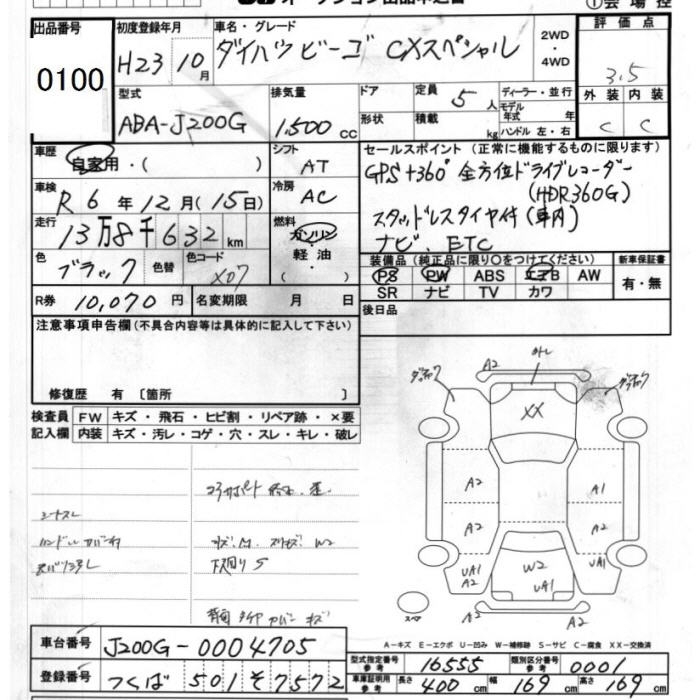 出品番号
0100
初度登録年月
H23 10月
車名・グレード
ダイハツビーゴ CXスペシャル
2WD
・
4WD
①会場控
評価点
3.5
外装 内装
C C
型式
ABA-J200G
排気量
1,500cc
ドア
形状
定員 5人
積載 kg
ディーラー・並行
モデル年式 年式
ハンドル 左・右
車歴
自家用・( )
シフト
AT
車検
R6年12月(15日)
冷房
AC
走行
13万8千632km
燃料
ガソリン
軽油
( )
色
ブラック
色替
色コード
X07
R券 10,070円
名変期限 月 日
セールスポイント(正常に機能するものに限ります)
GPS+360° 全方位ドライブレコーダー
(HDR360G)
スタッドレスタイヤ付(車内)
ナビ. ETC
装備品(純正品に限り○をつけてください)
PS PW ABS エアB AW
SR ナビ TV カワ
新車保証書
有・無
後日品
注意事項申告欄(不具合内容等は具体的に記入して下さい)
修復歴 有〔箇所 〕
検査員
記入欄
FW キズ・飛石・ヒビ割・リペア跡・×要
内装 キズ・汚レ・コゲ・穴・スレ・キレ・破レ
シートスレ
A2
XX
A2 A1
A2 A2
UA1 A2
W2
UA1
UA1
A2
A2 A2
スペア
A-キズ E-エクボ U-凹み W-補修跡 S-サビ C-腐食 XX-交換済
車台番号
J200G-0004705
登録番号
つくば 501 そ 7572
型式指定番号 参考
16555
類別区分番号 参考
0001
車庫証明用 参考
長さ 400cm 幅 169cm 高さ 169cm